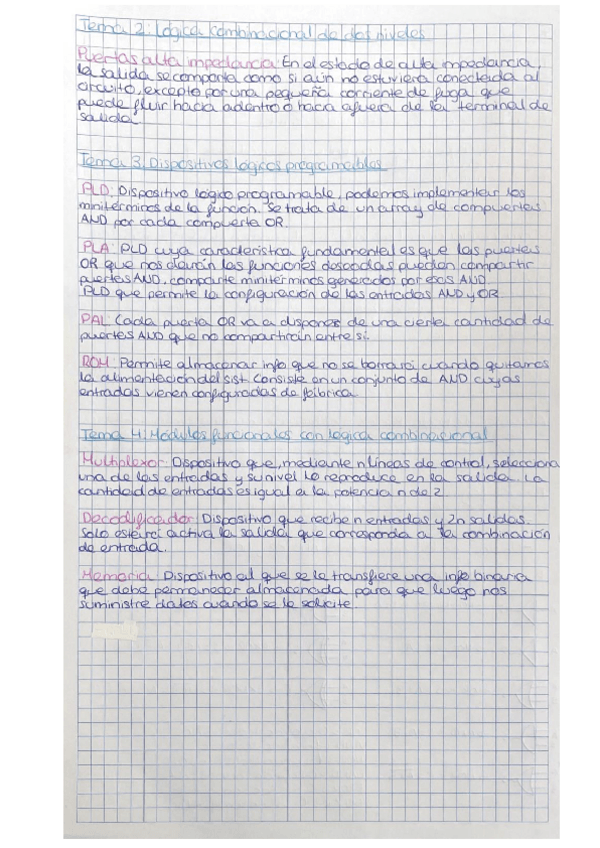 Tema 2: Lógica combinacional de dos niveles
Puertas alta impedancia: En el estado de alta impedancia,
la salida se comporta como si aún no estuviera conectada al
circuito, excepto por una pequeña corriente de fuga que
puede fluir hacia adentro o hacia afuera de la terminal de
salida
Tema 3: Dispositivos lógicos programables
PLD: Dispositivo lógico programable, podemos implementar los
minitérminos de la función. Se trata de un array de compuertas
AND por cada compuerta OR.
PLA: PLD cuya característica fundamental es que las puertas
OR que nos darán las funciones deseadas pueden compartir
puertas AND, comparte minitérminos generados por esos AND.
PLD que permite la configuración de las entradas AND y OR
PAL: Cada puerta OR va a disponer de una cierta cantidad de
puertas AND que no compartirán entre si.
ROM: Permite almacenar info que no se borrará cuando quitamos
la alimentación del sist. Consiste en un conjunto de AND cuyas
entradas vienen configuradas de fábrica
Tema 4: Módulos funcionales con lógica combinacional
Multiplexor: Dispositivo que, mediante n líneas de control, selecciona
una de las entradas y su nivel lo reproduce en la salida. La
cantidad de entradas es igual a la potencia n de 2
Decodificador: Dispositivo que recibe n entradas y 2n salidas.
Solo estará activa la salida que corresponda a la combinación
de entrada.
Memoria: Dispositivo al que se le transfiere una info binaria
que debe permanecer almacenada para que luego nos
suministre datos cuando se le solicite.